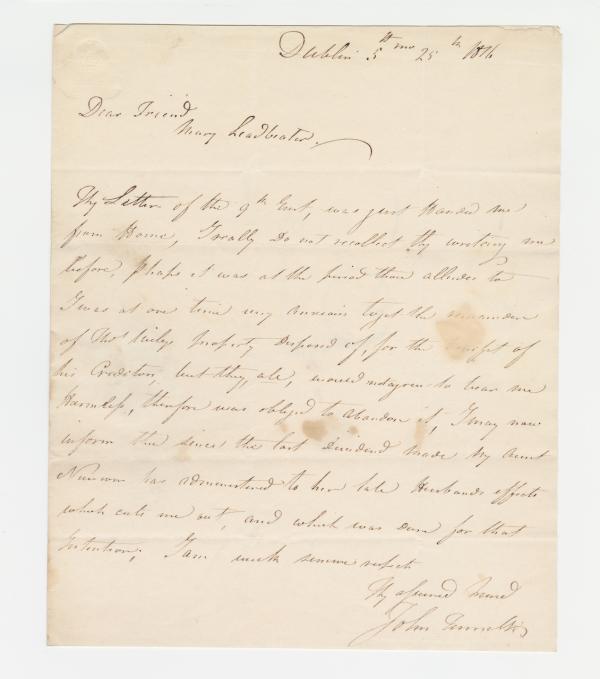 Dublin 5th mo 25th 1816
Dear Friend
Mary Leadbeater,
Thy Letter of the 9th Inst, was just Handed me
from Home, I really Do not recollect thy writing me
before, Phaps it was at the period thou alludes to
I was at one time very Anxious to get the remainder
of Thos Property Disposed of, for the benefit of
his Creditors, but they, all, would not agree to bear me
Harmless, therefore was obliged to Abandon it, I may now
inform thee since the last Dividend made My Aunt
has administered to her late Husbands effects
which cuts me out, and which was done for that
Intention; I am with sincere respect
Thy assured Friend
John